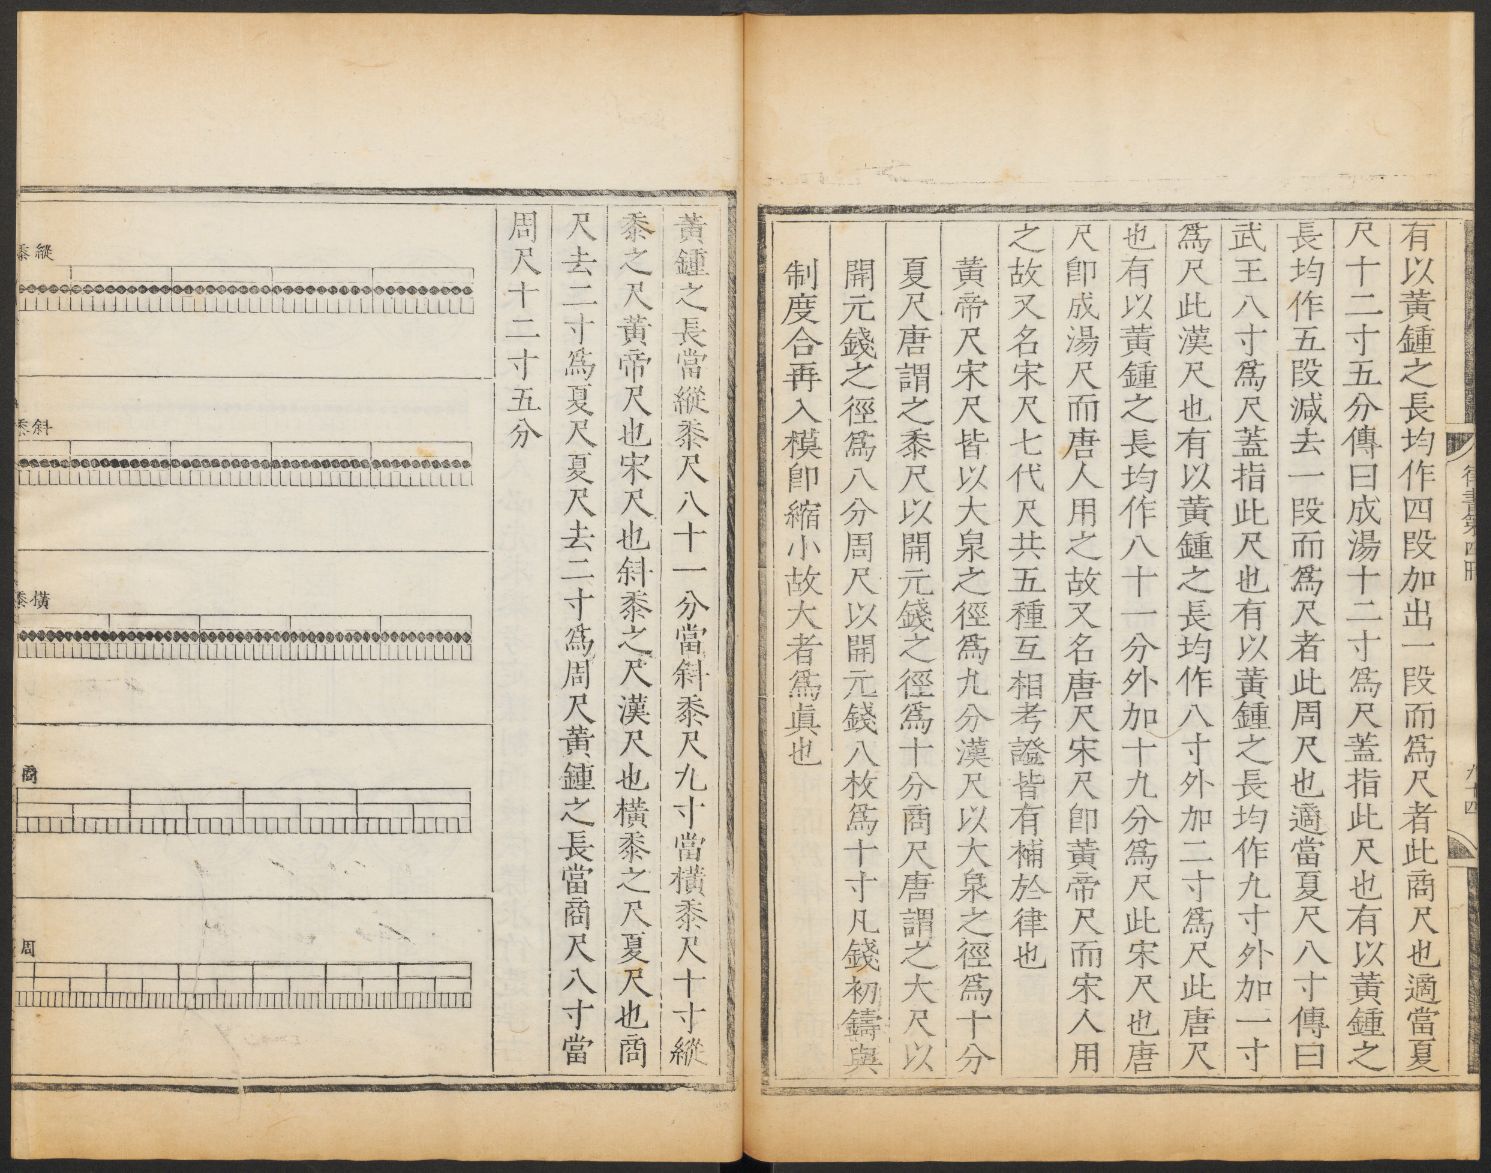 有以黃鍾之長均作四段加出一段而爲尺者此商尺也適當夏
尺十二寸五分傳曰成湯十二寸爲尺蓋指此尺也有以黃鍾之
長均作五段減去一段而爲尺者此周尺也適當夏尺八寸傳曰
武王八寸爲尺蓋指此尺也有以黃鍾之長均作九寸外加一寸
爲尺此漢尺也有以黃鍾之長均作八寸外加二寸爲尺此唐尺
也有以黃鍾之長均作八十一分外加十九分爲尺此宋尺也唐
尺卽成湯尺而唐人用之故又名唐尺宋尺卽黃帝尺而宋人用
之故又名宋尺七代尺共五種互相考證皆有補於律也
黃帝尺宋尺皆以大泉之徑爲九分漢尺以大泉之徑爲十分
夏尺唐謂之黍尺以開元錢之徑爲十分商尺唐謂之大尺以
開元錢之徑爲八分周尺以開元錢八枚爲十寸凡錢初鑄與
制度合再入模卽縮小故大者爲眞也
律書第四冊
九十四
黃鍾之長當縱黍尺八十一分當斜黍尺九寸當橫黍尺十寸縱
黍之尺黃帝尺也宋尺也斜黍之尺漢尺也橫黍之尺夏尺也商
尺去二寸爲夏尺夏尺去二寸爲周尺黃鍾之長當商尺八寸當
周尺十二寸五分
縱黍
斜黍
橫黍
商
周